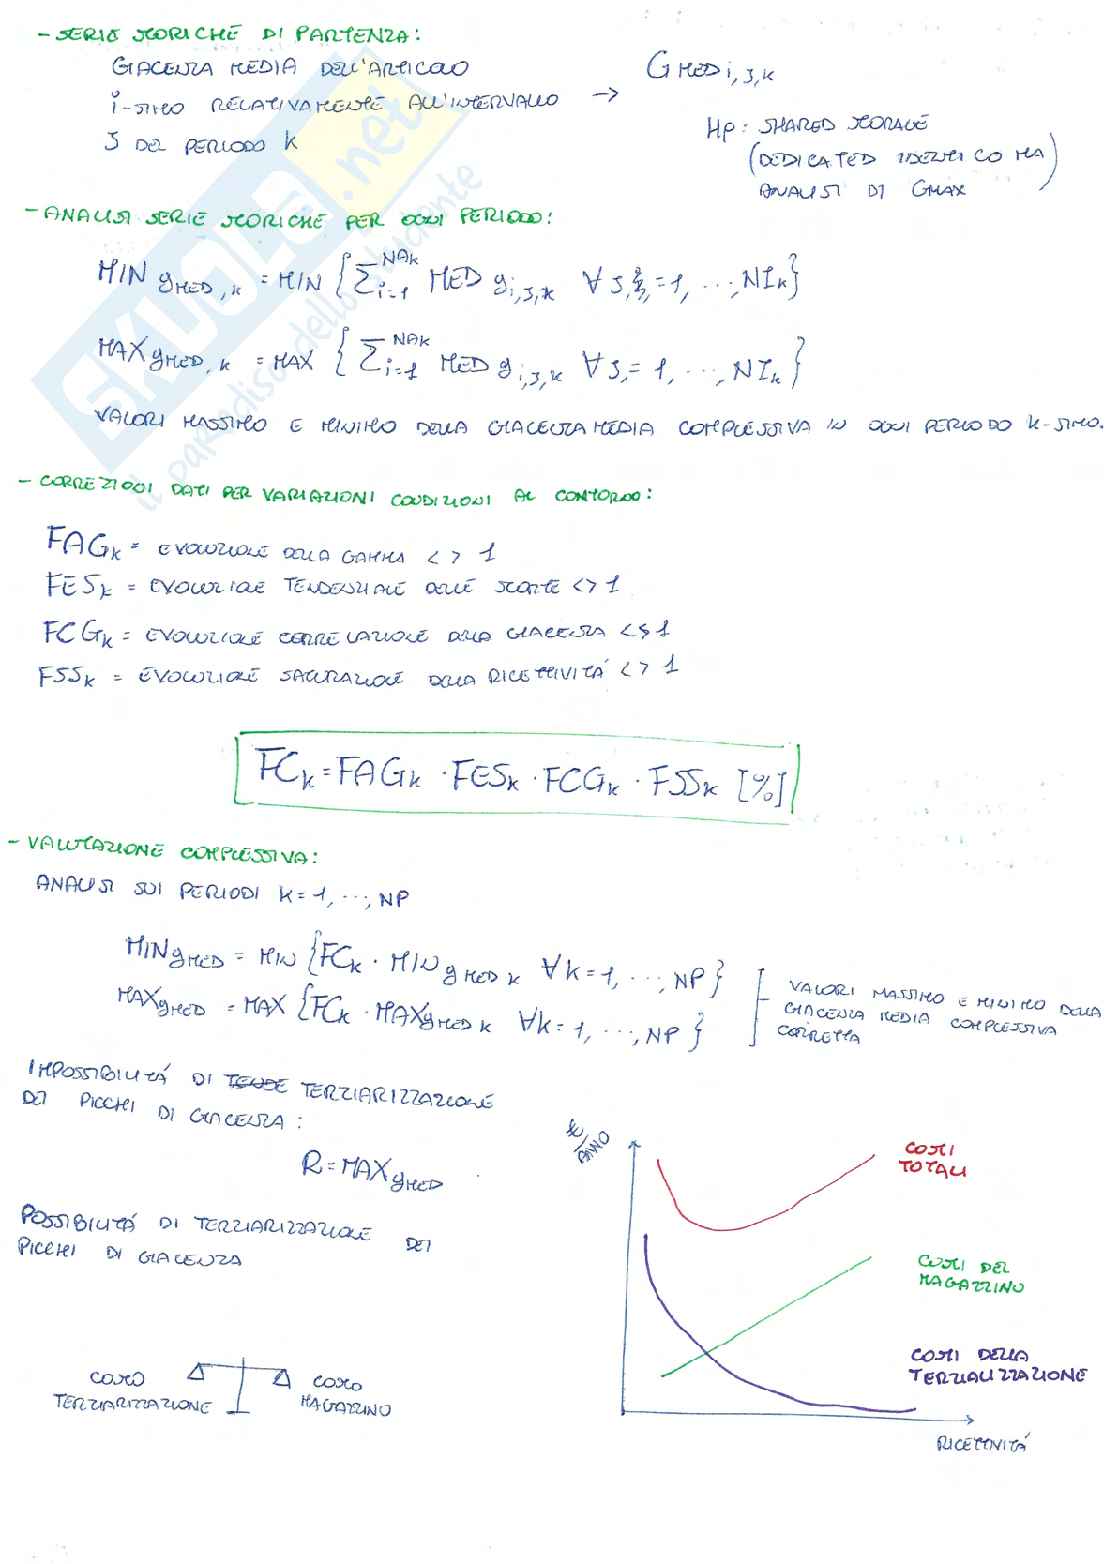 - SERIE STORICHE DI PARTENZA:
GIACENZA MEDIA DELL'ARTICOLO
i-SIMO RELATIVAMENTE ALL'INTERVALLO →
J DEL PERIODO K
GMED i,J,K
Hp: SHARED STORAGE
(DEDICATED IDENTICO MA
ANALISI DI GMAX)
- ANALISI SERIE STORICHE PER OGNI PERIODO:
MIN gMED,K = MIN { Σ i=1 NAK MED g i,J,K ∀ J = 1, ..., NIK }
MAX gMED,K = MAX { Σ i=1 NAK MED g i,J,K ∀ J = 1, ..., NIK }
VALORI MASSIMO E MINIMO DELLA GIACENZA MEDIA COMPLESSIVA IN OGNI PERIODO K-SIMO.
- CORREZIONI DATI PER VARIAZIONI CONDIZIONI AL CONTORNO:
FAGK = EVOLUZIONE DELLA GAMMA <> 1
FESK = EVOLUZIONE TENDENZIALE DELLE SCORTE <> 1
FCGK = EVOLUZIONE CORRELAZIONE DELLA GIACENZA <> 1
FSSK = EVOLUZIONE SATURAZIONE DELLA RICETTIVITÁ <> 1
FCK = FAGK · FESK · FCGK · FSSK [%]
- VALUTAZIONE COMPLESSIVA:
ANALISI SUI PERIODI K = 1, ..., NP
MIN gMED = MIN { FCK · MIN gMED K ∀K = 1, ..., NP }
MAX gMED = MAX { FCK · MAX gMED K ∀K = 1, ..., NP }
VALORI MASSIMO E MINIMO DELLA
GIACENZA MEDIA COMPLESSIVA
CORRETTA
IMPOSSIBILITÁ DI TENDE TERZIARIZZAZIONE
DEI PICCHI DI GIACENZA:
R = MAX gMED
POSSIBILITÁ DI TERZIARIZZAZIONE DEI
PICCHI DI GIACENZA
COSTO
TERZIARIZZAZIONE
COSTO
MAGAZZINO
€/ANNO
COSTI
TOTALI
COSTI DEL
MAGAZZINO
COSTI DELLA
TERZIALIZZAZIONE
RICETTIVITÁ
SKUOLA.net
il paradiso dello studente